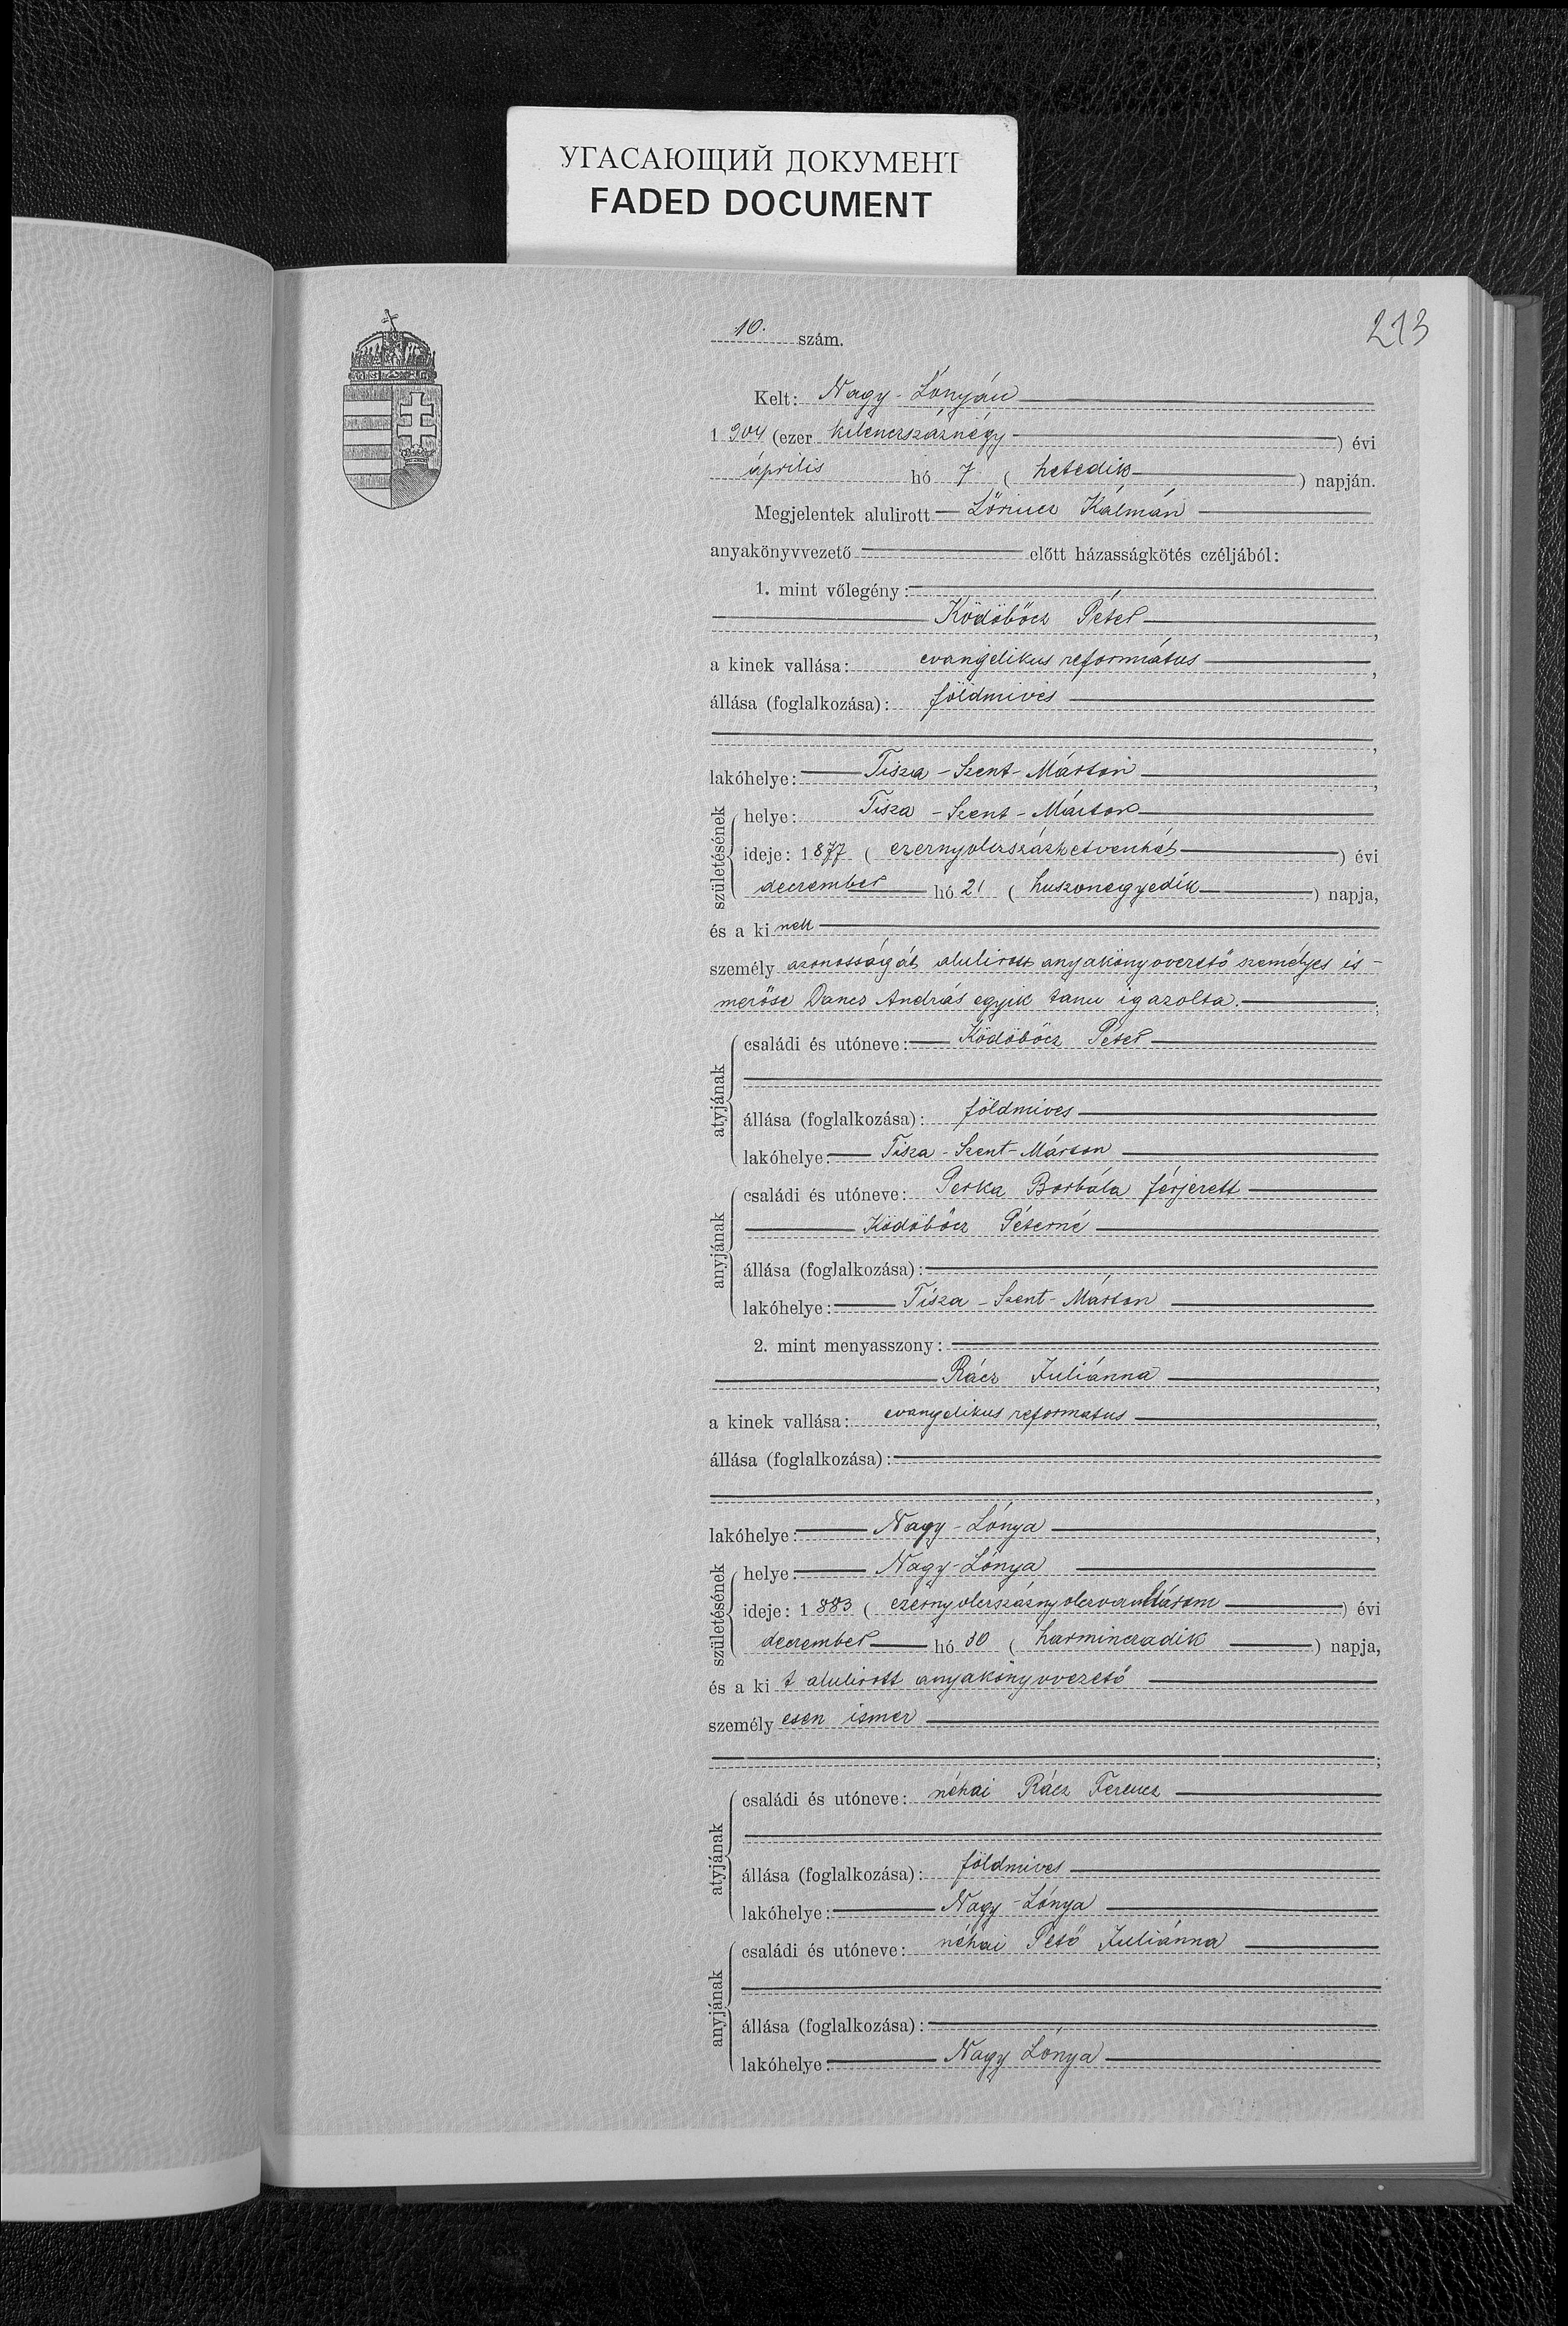 УГАСАЮЩИЙ ДОКУМЕНТ
FADED DOCUMENT
213
10. szám.
Kelt: Nagy-Lónyán
1904 (ezer kilenczszáznégy) évi
április hó 7 (hetedik) napján.
Megjelentek alulirott Lőrincz Kálmán
anyakönyvvezető előtt házasságkötés czéljából:
1. mint vőlegény:
Ködöböcz Péter,
a kinek vallása: evangélikus református,
állása (foglalkozása): földmives
,
lakóhelye: Tisza-Szent-Márton,
születésének
helye: Tisza-Szent-Márton
ideje: 1877 (ezernyolczszázhetvenhét) évi
deczember hó 21 (huszonegyedik) napja,
és a kinek
személy azonosságát alulirott anyakönyvvezető személyes is-
merőse Dancs András egyik tanu igazolta.;
atyjának
családi és utóneve: Ködöböcz Péter
állása (foglalkozása): földmives
lakóhelye: Tisza-Szent-Márton
anyjának
családi és utóneve: Perka Borbála férjezett
Ködöböcz Péterné
állása (foglalkozása):
lakóhelye: Tisza-Szent-Márton
2. mint menyasszony:
Rácz Juliánna,
a kinek vallása: evangelikus reformatus,
állása (foglalkozása):
,
lakóhelye: Nagy-Lónya,
születésének
helye: Nagy-Lónya
ideje: 1883 (ezernyolczszáznyolczvanhárom) évi
deczember hó 30 (harminczadik) napja,
és a kit alulirott anyakönyvvezető
személyesen ismer
;
atyjának
családi és utóneve: néhai Rácz Ferencz
állása (foglalkozása): földmives
lakóhelye: Nagy-Lónya
anyjának
családi és utóneve: néhai Pető Juliánna
állása (foglalkozása):
lakóhelye: Nagy Lónya